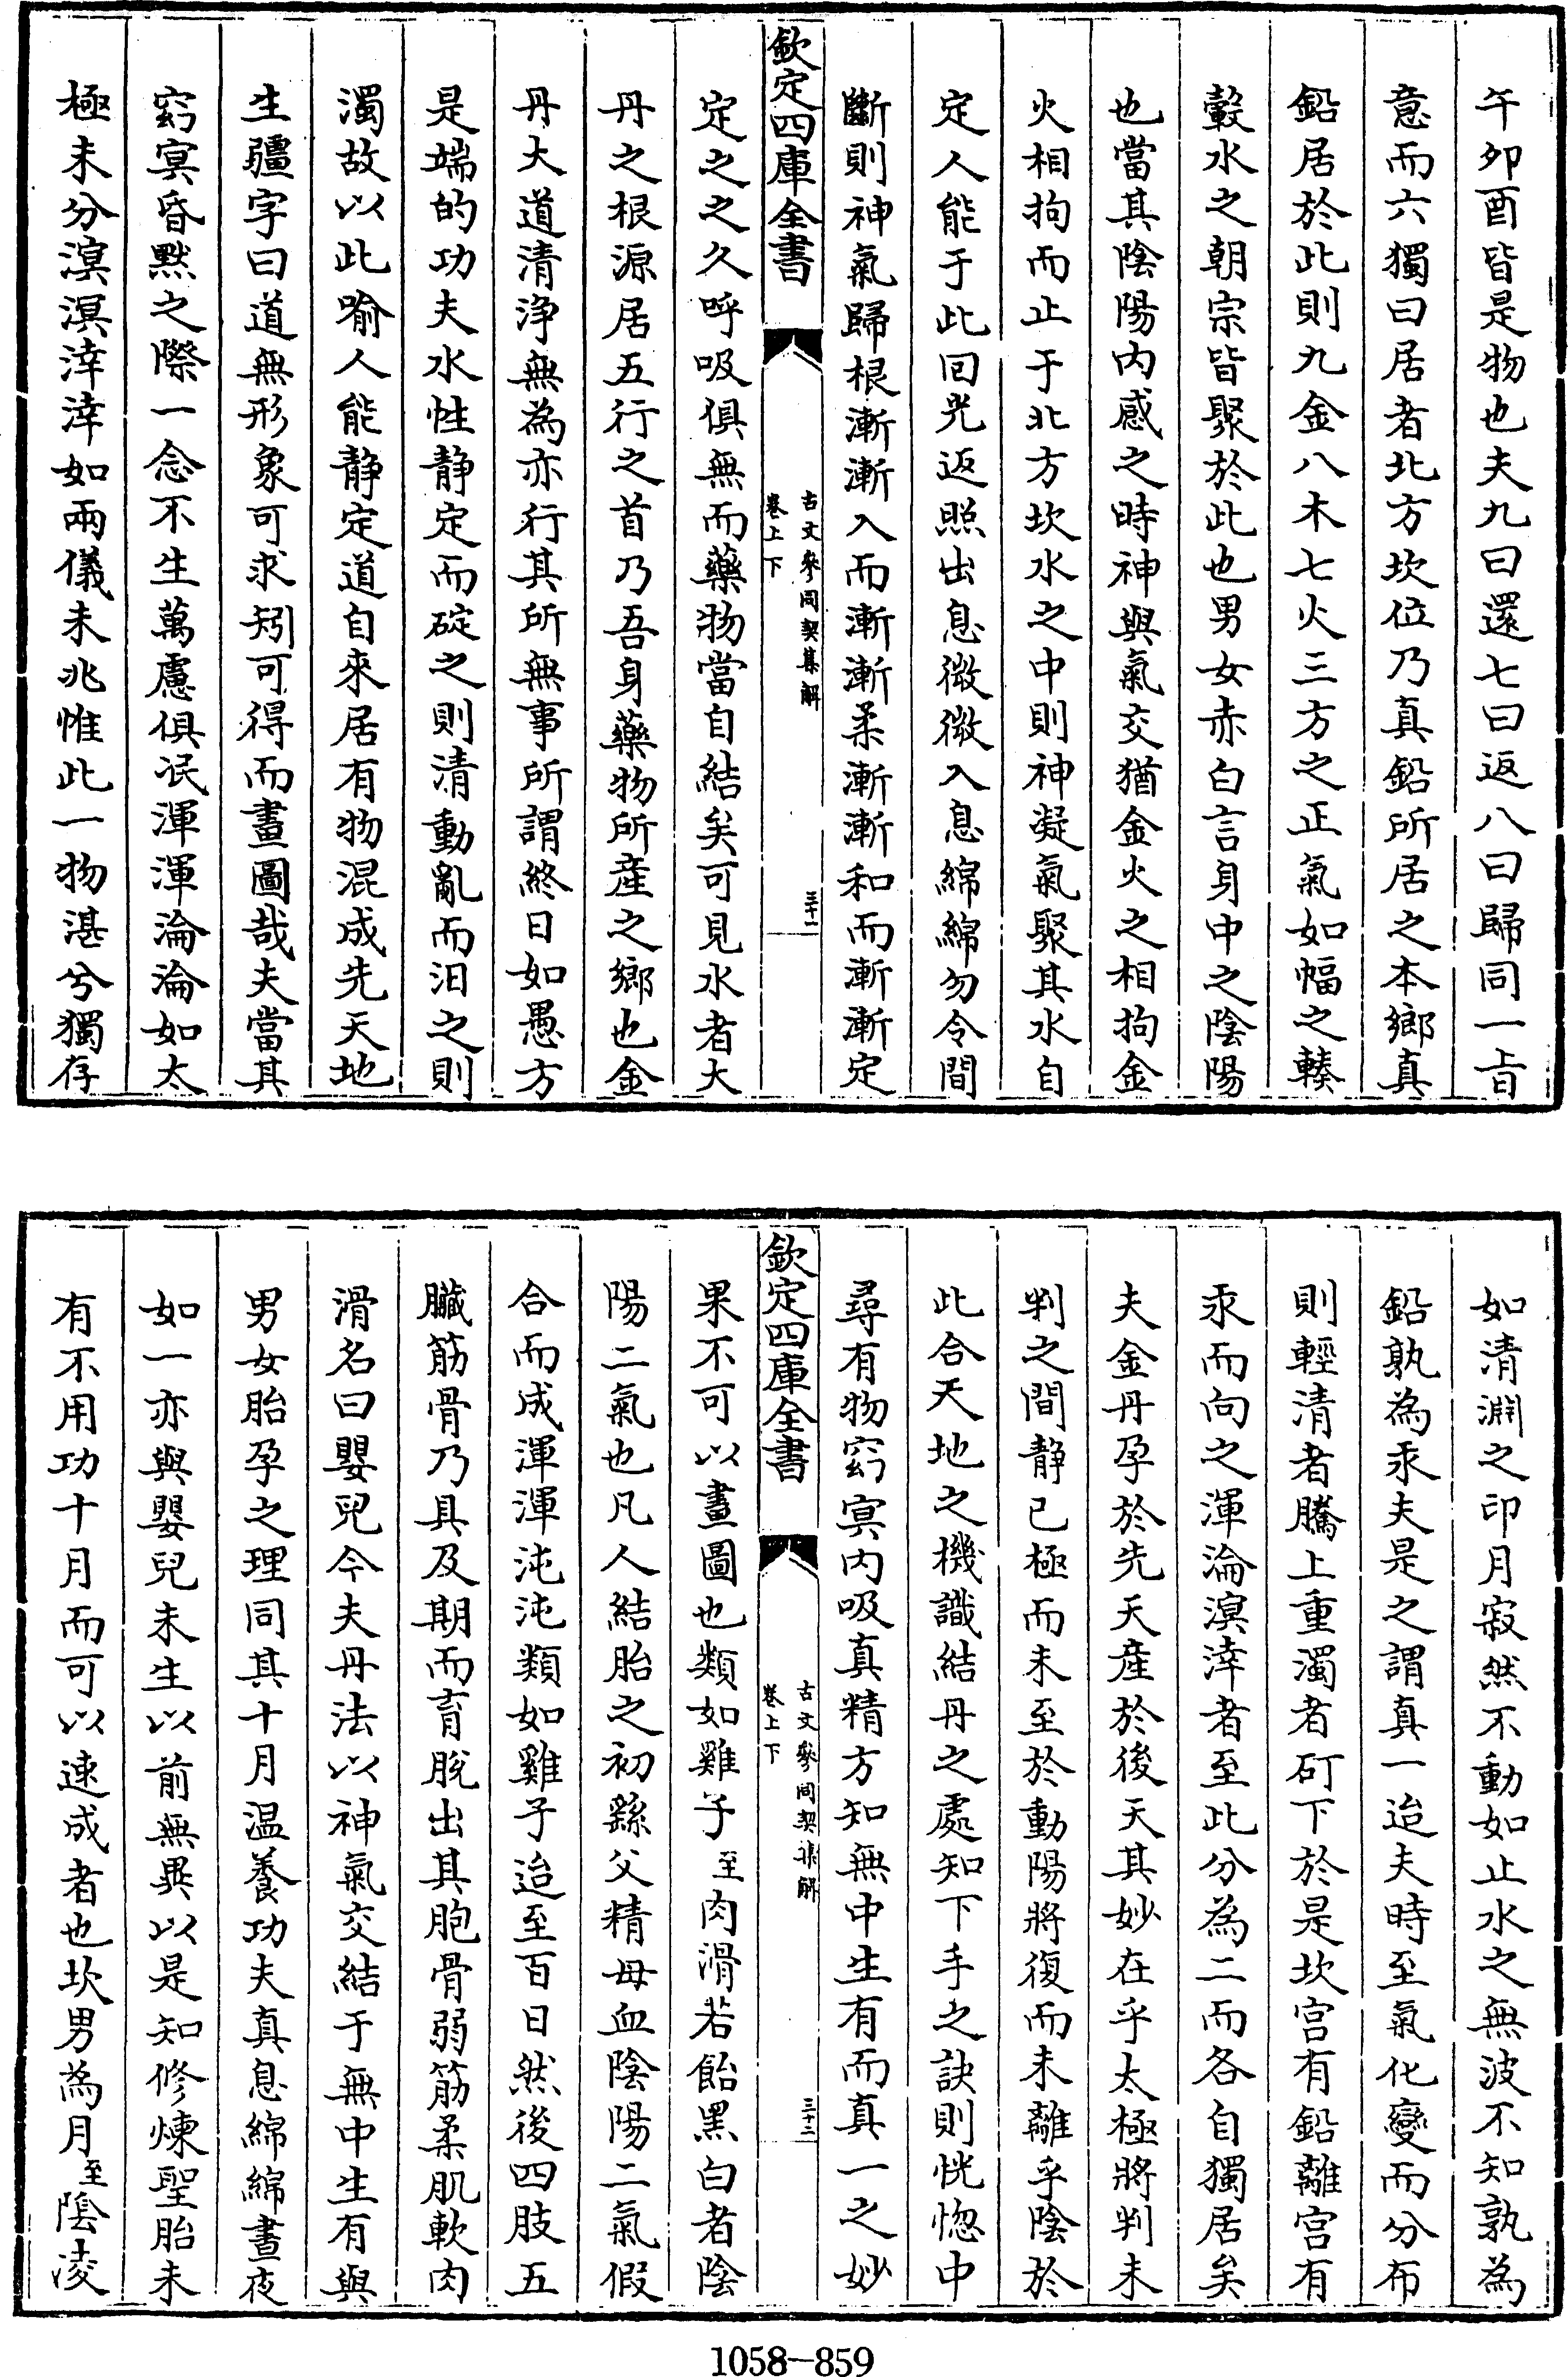 午卯酉皆是物也夫九曰還七曰返八曰歸同一㫖
意而六獨曰居者北方坎位乃真鉛所居之本鄉真
鉛居於此則九金八木七火三方之正氣如幅之輳
轂水之朝宗皆聚於此也男女赤白言身中之陰陽
也當其陰陽内感之時神與氣交猶金火之相拘金
火相拘而止于北方坎水之中則神凝氣聚其水自
定人能于此回光返照出息微微入息綿綿勿令間
斷則神氣歸根漸漸入而漸漸柔漸漸和而漸漸定
欽定四庫全書
古文參同契集解
卷上下
三十一
定之之久呼吸俱無而藥物當自結矣可見水者大
丹之根源居五行之首乃吾身藥物所産之鄉也金
丹大道清浄無為亦行其所無事所謂終日如愚方
是端的功夫水性靜定而碇之則清動亂而汨之則
濁故以此喻人能靜定道自來居有物混成先天地
生疆字曰道無形象可求矧可得而畫圖哉夫當其
窈冥昏黙之際一念不生萬慮俱泯渾渾淪淪如太
極未分溟溟涬涬如兩儀未兆惟此一物湛兮獨存
如清淵之印月寂然不動如止水之無波不知孰為
鉛孰為汞夫是之謂真一迨夫時至氣化變而分布
則輕清者騰上重濁者矴下於是坎宫有鉛離宫有
汞而向之渾淪溟涬者至此分為二而各自獨居矣
夫金丹孕於先天産於後天其妙在乎太極將判未
判之間靜已極而未至於動陽將復而未離乎陰於
此合天地之機識結丹之處知下手之訣則恍惚中
尋有物窈冥内吸真精方知無中生有而真一之妙
欽定四庫全書
古文參同契集解
卷上下
三十二
果不可以畫圖也類如雞子至肉滑若飴黑白者陰
陽二氣也凡人結胎之初繇父精母血陰陽二氣假
合而成渾渾沌沌類如雞子迨至百日然後四肢五
臟筋骨乃具及期而育脫出其胞骨弱筋柔肌軟肉
滑名曰嬰兒今夫丹法以神氣交結于無中生有與
男女胎孕之理同其十月温養功夫真息綿綿晝夜
如一亦與嬰兒未生以前無異以是知修煉聖胎未
有不用功十月而可以速成者也坎男為月至陰凌
1058—859